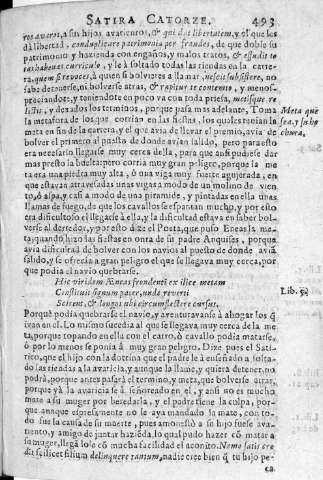 SATIRA CATORZE. 493
ros aueros, a sus hijos auarientos, & qui dat libertatem, y el que les
dà libertad, conduplicare patrimonia per fraudes, de que doble su
patrimonio y hazienda con engaños, y malos tratos, & effudit to
tas habenas curriculo, y le à soltado todas las riendas en la carre-
ra, quem si reuoces, à quien si bolvieres a llamar, nescit subsistere, no
sabe detenerse, ni bolverse atras, & rapitur te contento, y menos-
preciandote, y teniendote en poco va con toda priesa, metisque re
lictis, y dexados los terminos, porque pasa mas adelante, Toma
la metafora de los que corrian en las fiestas, los quales tenian la
meta en fin de la carrera, y el que avia de llevar el premio, avia de
bolver el primero al puesto de donde avian salido, pero para esto
era necesario llegarse muy cerca della, para que ansi pudiese dar
mas presto la buelta: pero corria muy gran peligro, porque la me
ta era una piedra muy alta, ò una viga muy fuerte agujerada, en
que estavan atravesadas unas vigas a modo de un molino de vien
to, ò aspa, y casi a modo de una piramide, y pintadas en ella unas
llamas de fuego, de que los cavallos se espantan mucho, y por esto
era dificultoso el llegarse à ella, y la dificultad estava en saber bol-
verse al derredor, y por esto dize el Poeta, que puso Eneas la me-
ta, quando hizo las fiestas en onra de su padre Anquises, porque
avia dificultad de bolver con los navios al puesto de donde aviã
salido, y se ofrecia a gran peligro el que se llegava muy cerca, por
que podia el navio quebrarse.
Hic viridem Æneas frondenti ex ilice metam
Constituit signum pater, unde reuerti
Scirent, & longos ubi circumflectere cursus.
Porque podia quebrarse el navio, y aventuravanse à ahogar los q̃
ivan en el. Lo mismo sucedia al que se llegava muy cerca de la me
ta, porque topando en ella con el carro, ò cavallo podia matarse,
ò por lo menos se ponia à muy gran peligro. Dize pues el Sati-
rico, que el hijo con la dotrina que el padre le à enseñado a solta-
do las riendas a la avaricia, y aunque la llame, y quiera detener, no
podrà, porque antes pasarà el termino, y meta, que bolverse atras,
porque yà la avaricia se à señoreado en el, y ansi no es mucho
mate a su muger por heredarla, y el padre tiene la culpa, por-
que aunque espresamente no le aya mandado la mate, con to-
do fue la causa de su muerte, pues amonestò a su hijo fuese ava-
riento, y amigo de juntar haziẽda, lo qual pudo hazer cõ matar a
su muger, llegà lo le cõ mucha facilidad el aconito. Nemo satis cre
dit scilicet filium delinquere tantum, nadie cree bien q̃ tu hijo pe-
ca
Meta que
sea, y su he
chura,
Lib. 5.